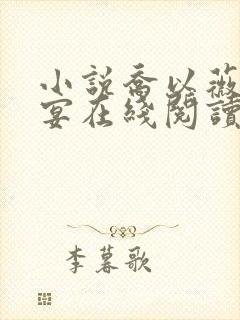 小說喬以薇
宴在綫閱讀
李暮歌